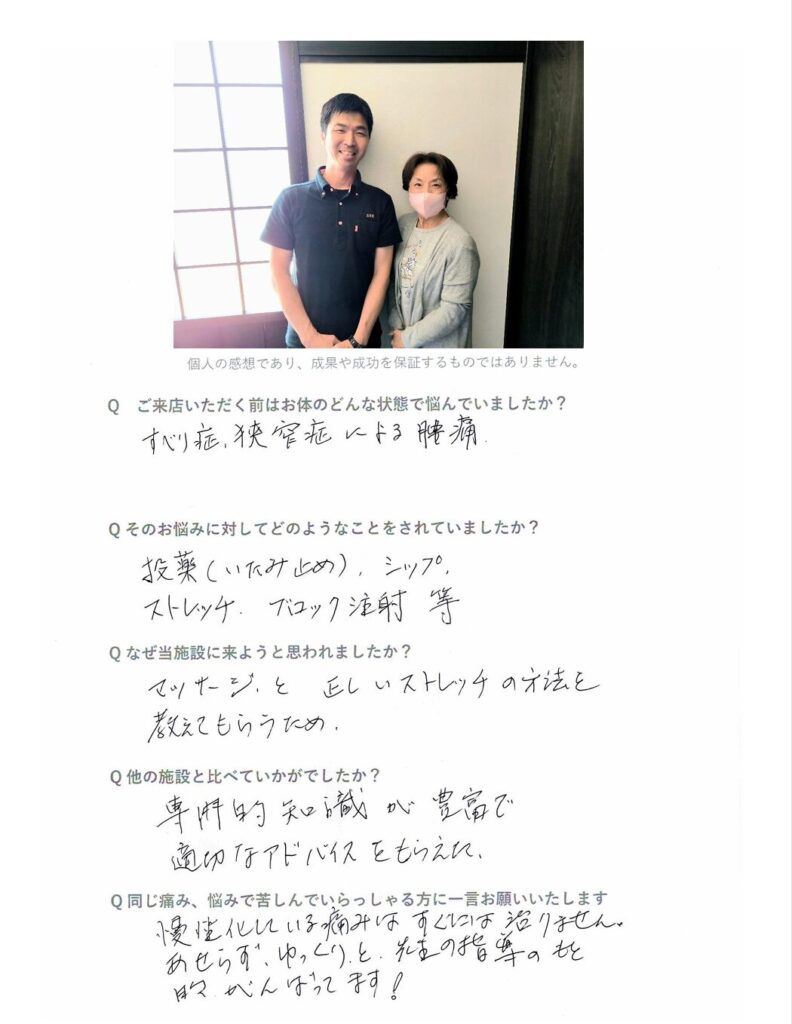 個人の感想であり、成果や成功を保証するものではありません。
Q ご来店いただく前はお体のどんな状態で悩んでいましたか？
すべり症、狭窄症による腰痛.
Q そのお悩みに対してどのようなことをされていましたか？
投薬(いたみ止め)、シップ、
ストレッチ、ブロック注射 等
Q なぜ当施設に来ようと思われましたか？
マッサージと 正しいストレッチの方法を
教えてもらうため.
Q 他の施設と比べていかがでしたか？
専門的知識が豊富で
適切なアドバイスをもらえた、
Q 同じ痛み、悩みで苦しんでいらっしゃる方に一言お願いいたします
慢性化している痛みはすぐには治りません。
あせらず、ゆっくりと、先生の指導のもと
日々がんばってます！